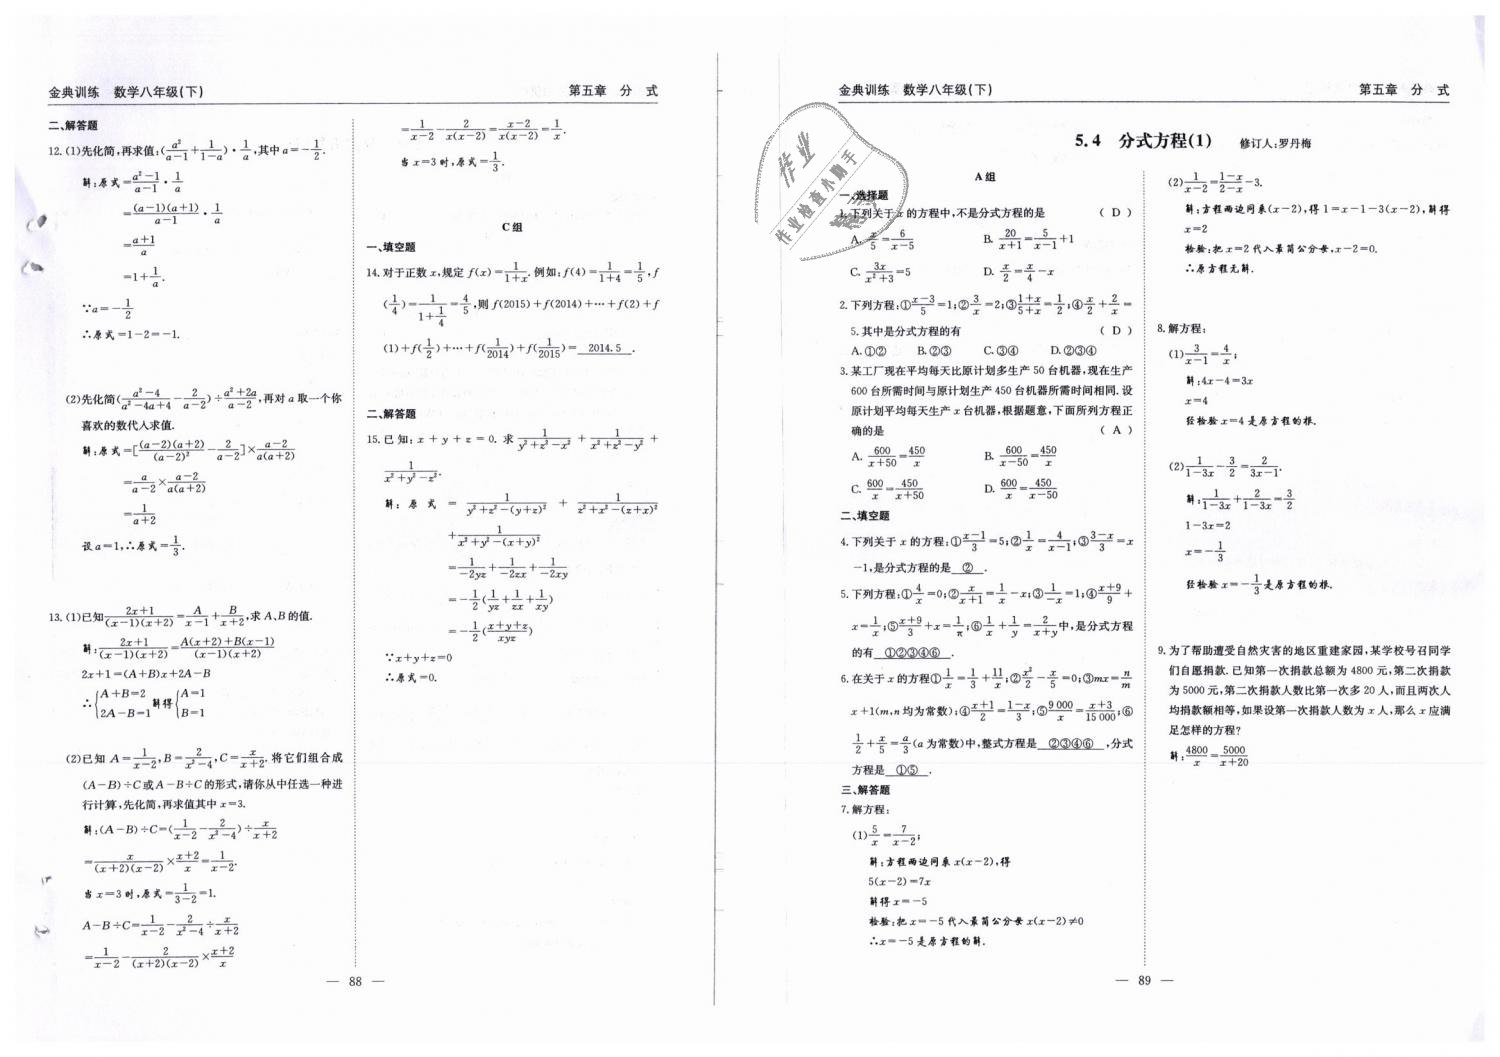 金典训练 数学八年级(下) 第五章 分 式
二、解答题
12.(1)先化简,再求值:(a²/(a-1)+1/(1-a))·1/a,其中a=-1/2.
解:原式=(a²-1)/(a-1)·1/a
=(a-1)(a+1)/(a-1)·1/a
=(a+1)/a
=1+1/a.
∵a=-1/2
∴原式=1-2=-1.
(2)先化简((a²-4)/(a²-4a+4)-2/(a-2))÷(a²+2a)/(a-2),再对a取一个你
喜欢的数代入求值.
解:原式=[(a-2)(a+2)/(a-2)²-2/(a-2)]×(a-2)/a(a+2)
=a/(a-2)×(a-2)/a(a+2)
=1/(a+2)
设a=1,∴原式=1/3.
13.(1)已知(2x+1)/(x-1)(x+2)=A/(x-1)+B/(x+2),求A、B的值.
解:(2x+1)/(x-1)(x+2)=(A(x+2)+B(x-1))/(x-1)(x+2)
2x+1=(A+B)x+2A-B
∴{A+B=2 2A-B=1 解得{A=1 B=1
(2)已知 A=1/(x-2),B=2/(x²-4),C=x/(x+2).将它们组合成
(A-B)÷C或A-B÷C的形式,请你从中任选一种进
行计算,先化简,再求值其中x=3.
解:(A-B)÷C=(1/(x-2)-2/(x²-4))÷x/(x+2)
=x/(x+2)(x-2)×(x+2)/x=1/(x-2).
当x=3时,原式=1/(3-2)=1.
A-B÷C=1/(x-2)-2/(x²-4)÷x/(x+2)
=1/(x-2)-2/(x+2)(x-2)×(x+2)/x
=1/(x-2)-2/x(x-2)=(x-2)/x(x-2)=1/x.
当x=3时,原式=1/3.
C组
一、填空题
14.对于正数x,规定f(x)=1/(1+x).例如:f(4)=1/(1+4)=1/5,f
(1/4)=1/(1+1/4)=4/5,则f(2015)+f(2014)+…+f(2)+f
(1)+f(1/2)+…+f(1/2014)+f(1/2015)= 2014.5 .
二、解答题
15.已知:x+y+z=0.求1/(y²+z²-x²)+1/(x²+z²-y²)+
1/(x²+y²-z²).
解:原式=1/(y²+z²-(y+z)²)+1/(z²+x²-(z+x)²)
+1/(x²+y²-(x+y)²)
=1/(-2yz)+1/(-2zx)+1/(-2xy)
=-1/2(1/yz+1/zx+1/xy)
=-1/2((x+y+z)/xyz)
∵x+y+z=0
∴原式=0.
— 88 —
金典训练 数学八年级(下) 第五章 分 式
5.4 分式方程(1) 修订人:罗丹梅
作业
作业检查小助手
A组
一、选择题
1.下列关于x的方程中,不是分式方程的是 ( D )
A.x/5=6/(x-5) B.20/(x+1)=5/(x-1)+1
C.3x/(x²+3)=5 D.x/2=x/4-x
2.下列方程:①(x-3)/5=1;②3/x=2;③(1+x)/(5+x)=1/2;④x/2+2/x=
5.其中是分式方程的有 ( D )
A.①② B.②③ C.③④ D.②③④
3.某工厂现在平均每天比原计划多生产50台机器,现在生产
600台所需时间与原计划生产450台机器所需时间相同.设
原计划平均每天生产x台机器,根据题意,下面所列方程正
确的是 ( A )
A.600/(x+50)=450/x B.600/(x-50)=450/x
C.600/x=450/(x+50) D.600/x=450/(x-50)
二、填空题
4.下列关于x的方程:①(x-1)/3=5;②1/x=4/(x-1);③(3-x)/3=x
-1,是分式方程的是 ② .
5.下列方程:①4/x=0;②x/(x+1)=1/x-x;③1/(-x)=1;④(x+9)/9+
x=1/x;⑤(x+9)/3+x=1/π;⑥1/x+1/y=2/(x+y)中,是分式方程
的有 ①②③④⑥ .
6.在关于x的方程①1/x=1/3+11/x;②x²/2-x/5=0;③mx=n/m
x+1(m,n均为常数);④(x+1)/2=(1-x)/3;⑤9 000/x=(x+3)/15 000;⑥
1/2+x/5=a/3(a为常数)中,整式方程是 ②③④⑥ ,分式
方程是 ①⑤ .
三、解答题
7.解方程:
(1)5/x=7/(x-2);
解:方程两边同乘x(x-2),得
5(x-2)=7x
解得x=-5
检验:把x=-5代入最简公分母x(x-2)≠0
∴x=-5是原方程的解.
(2)1/(x-2)=(1-x)/(2-x)-3.
解:方程两边同乘(x-2),得1=x-1-3(x-2),解得
x=2
检验:把x=2代入最简公分母,x-2=0.
∴原方程无解.
8.解方程:
(1)3/(x-1)=4/x;
解:4x-4=3x
x=4
经检验x=4是原方程的根.
(2)1/(1-3x)-3/2=2/(3x-1).
解:1/(1-3x)+2/(1-3x)=3/2
1-3x=2
x=-1/3
经检验x=-1/3是原方程的根.
9.为了帮助遭受自然灾害的地区重建家园,某学校号召同学
们自愿捐款.已知第一次捐款总额为4800元,第二次捐款
为5000元,第二次捐款人数比第一次多20人,而且两次人
均捐款额相等,如果设第一次捐款人数为x人,那么x应满
足怎样的方程?
解:4800/x=5000/(x+20)
— 89 —